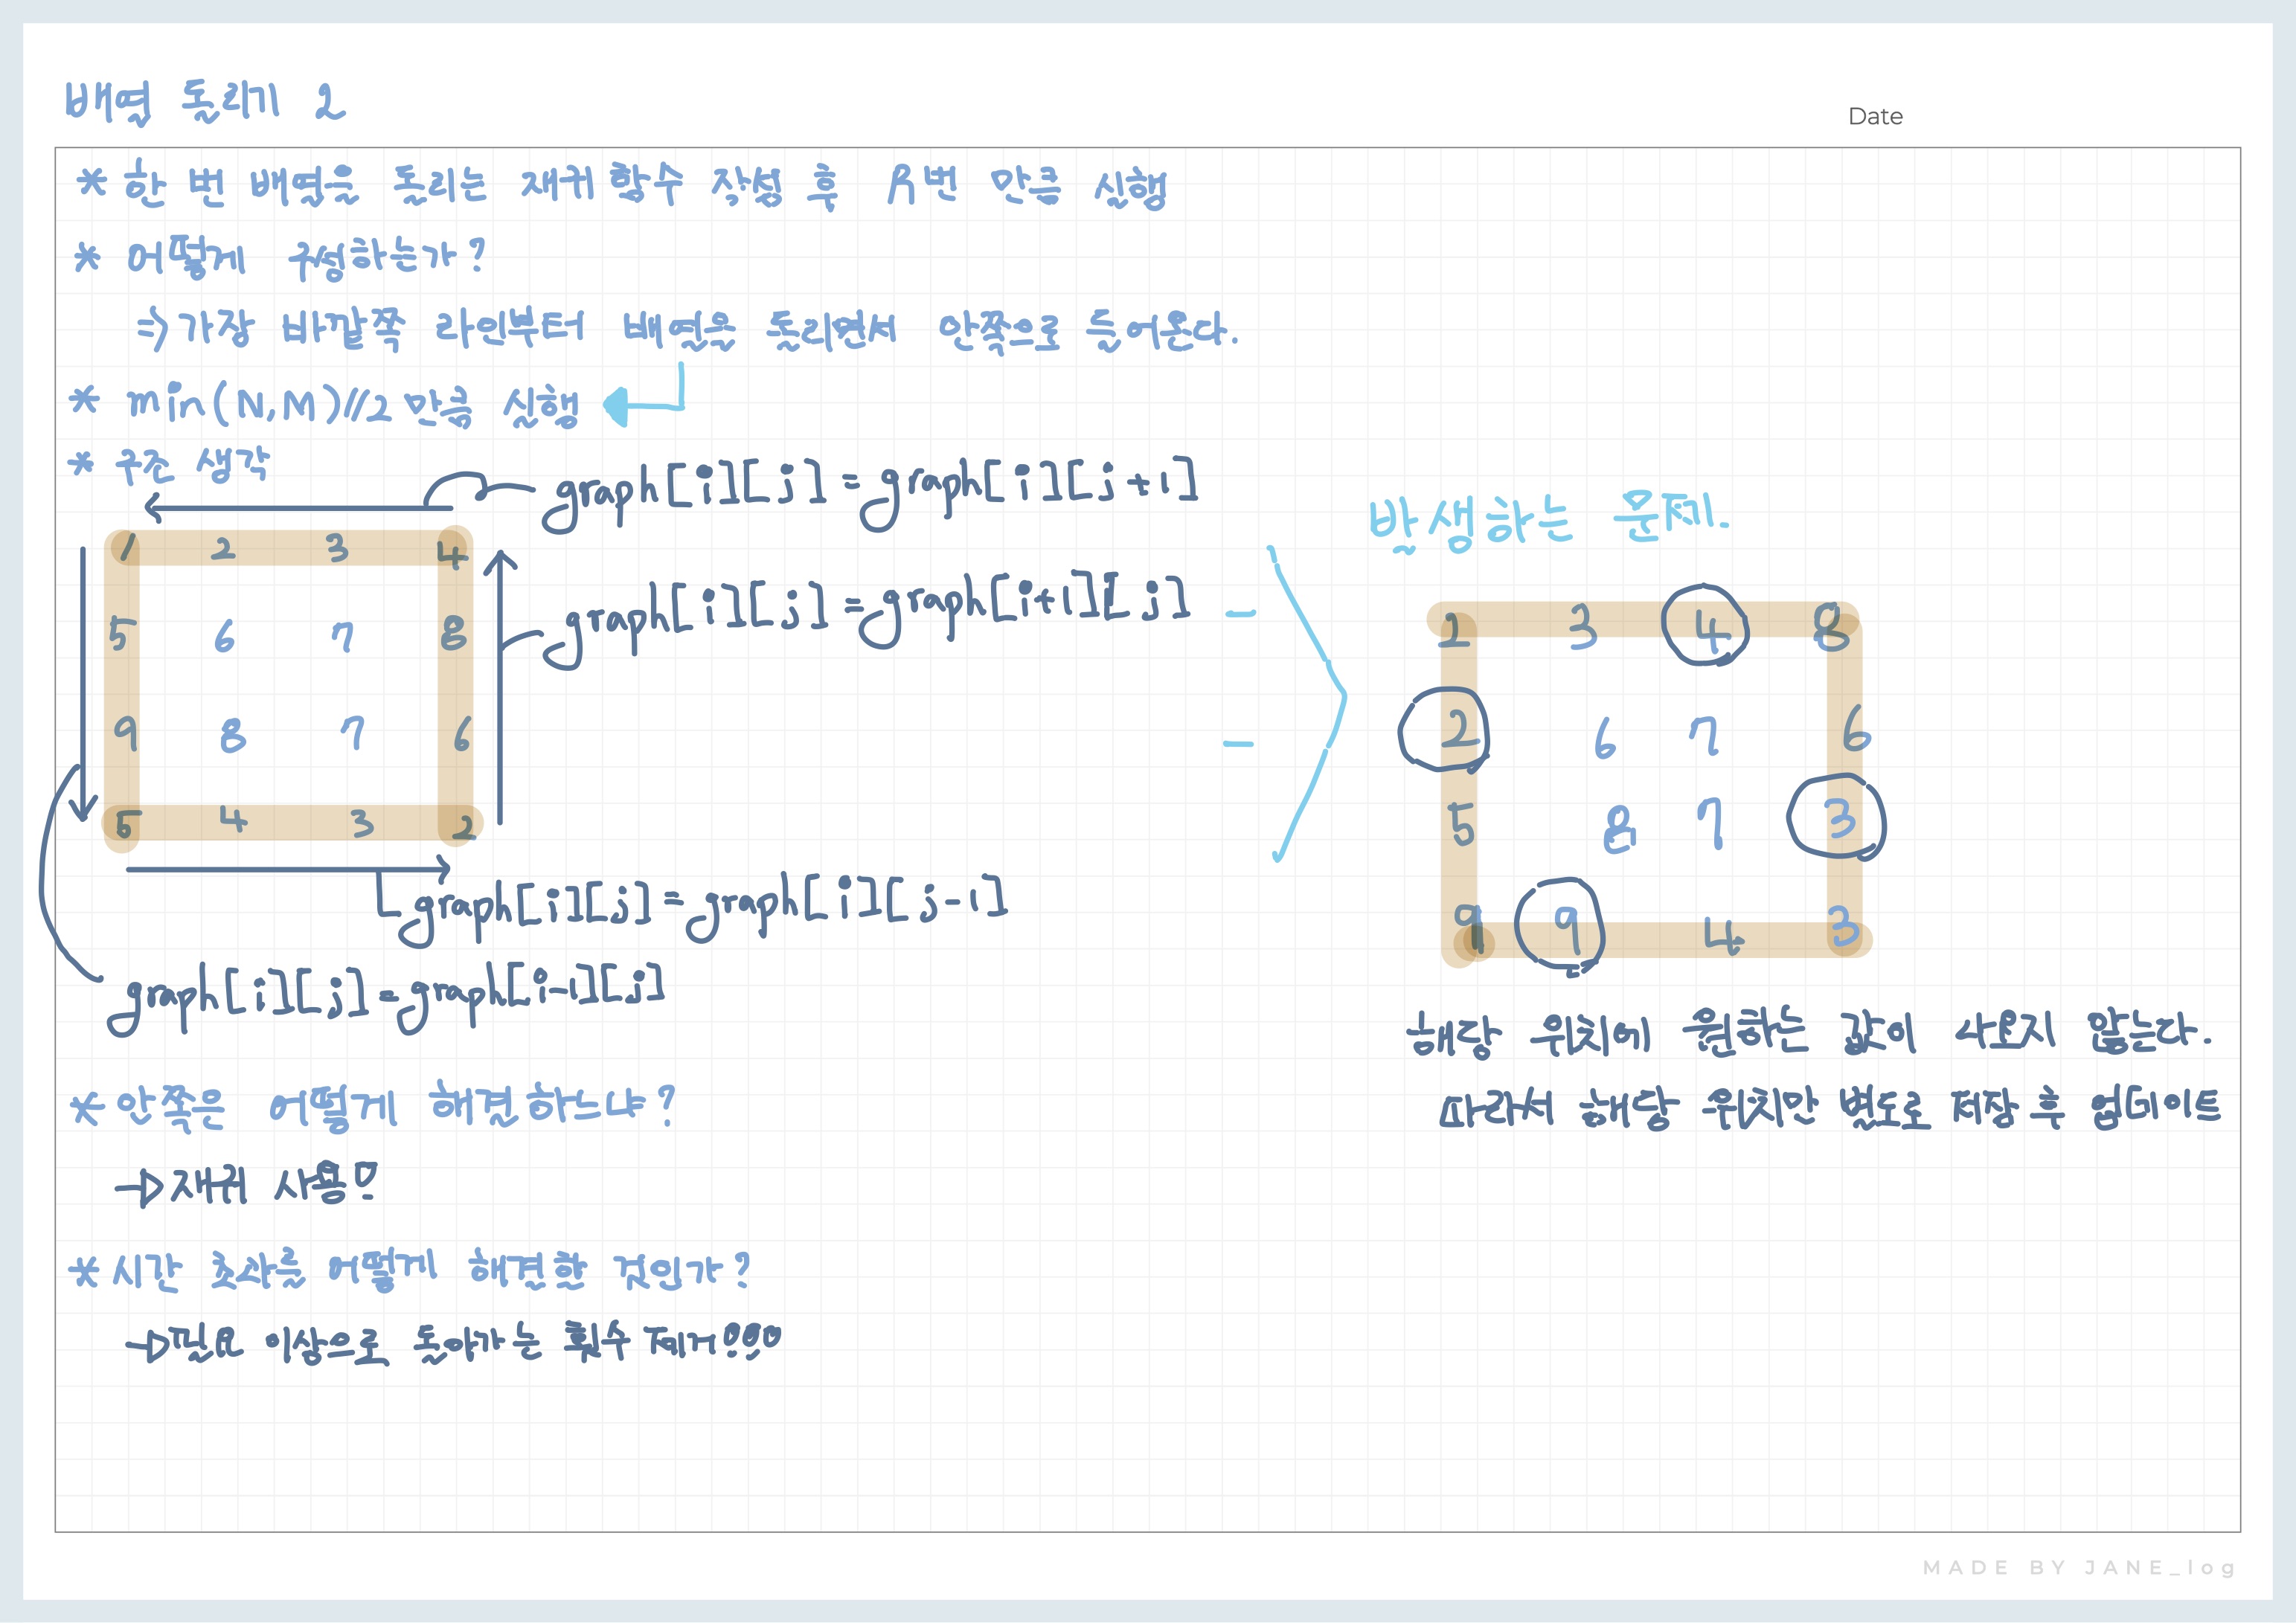 배열 돌리기 2
Date
* 한 번 배열을 돌리는 재귀 함수 작성 후 R번 만큼 실행
* 어떻게 구성하는가?
⇒ 가장 바깥쪽 라인부터 배열을 돌리면서 안쪽으로 들어온다.
* min(N,M)//2 만큼 실행
* 구조 생각
graph[i][j]=graph[i][j+1]
1 2 3 4
5 6 7 8
9 8 7 6
5 4 3 2
graph[i][j]=graph[i+1][j]
graph[i][j]=graph[i][j-1]
graph[i][j]=graph[i-1][j]
발생하는 문제.
2 3 4 8
2 6 7 6
5 8 7 3
9 9 4 3
해당 위치에 원하는 값이 나오지 않는다.
따라서 해당 위치만 별도로 저장 후 업데이트
* 안쪽은 어떻게 해결하느냐?
→ 재귀 사용
* 시간 초과를 어떻게 해결할 것인가?
→ 필요 이상으로 돌아가는 횟수 제거
MADE BY JANE_log